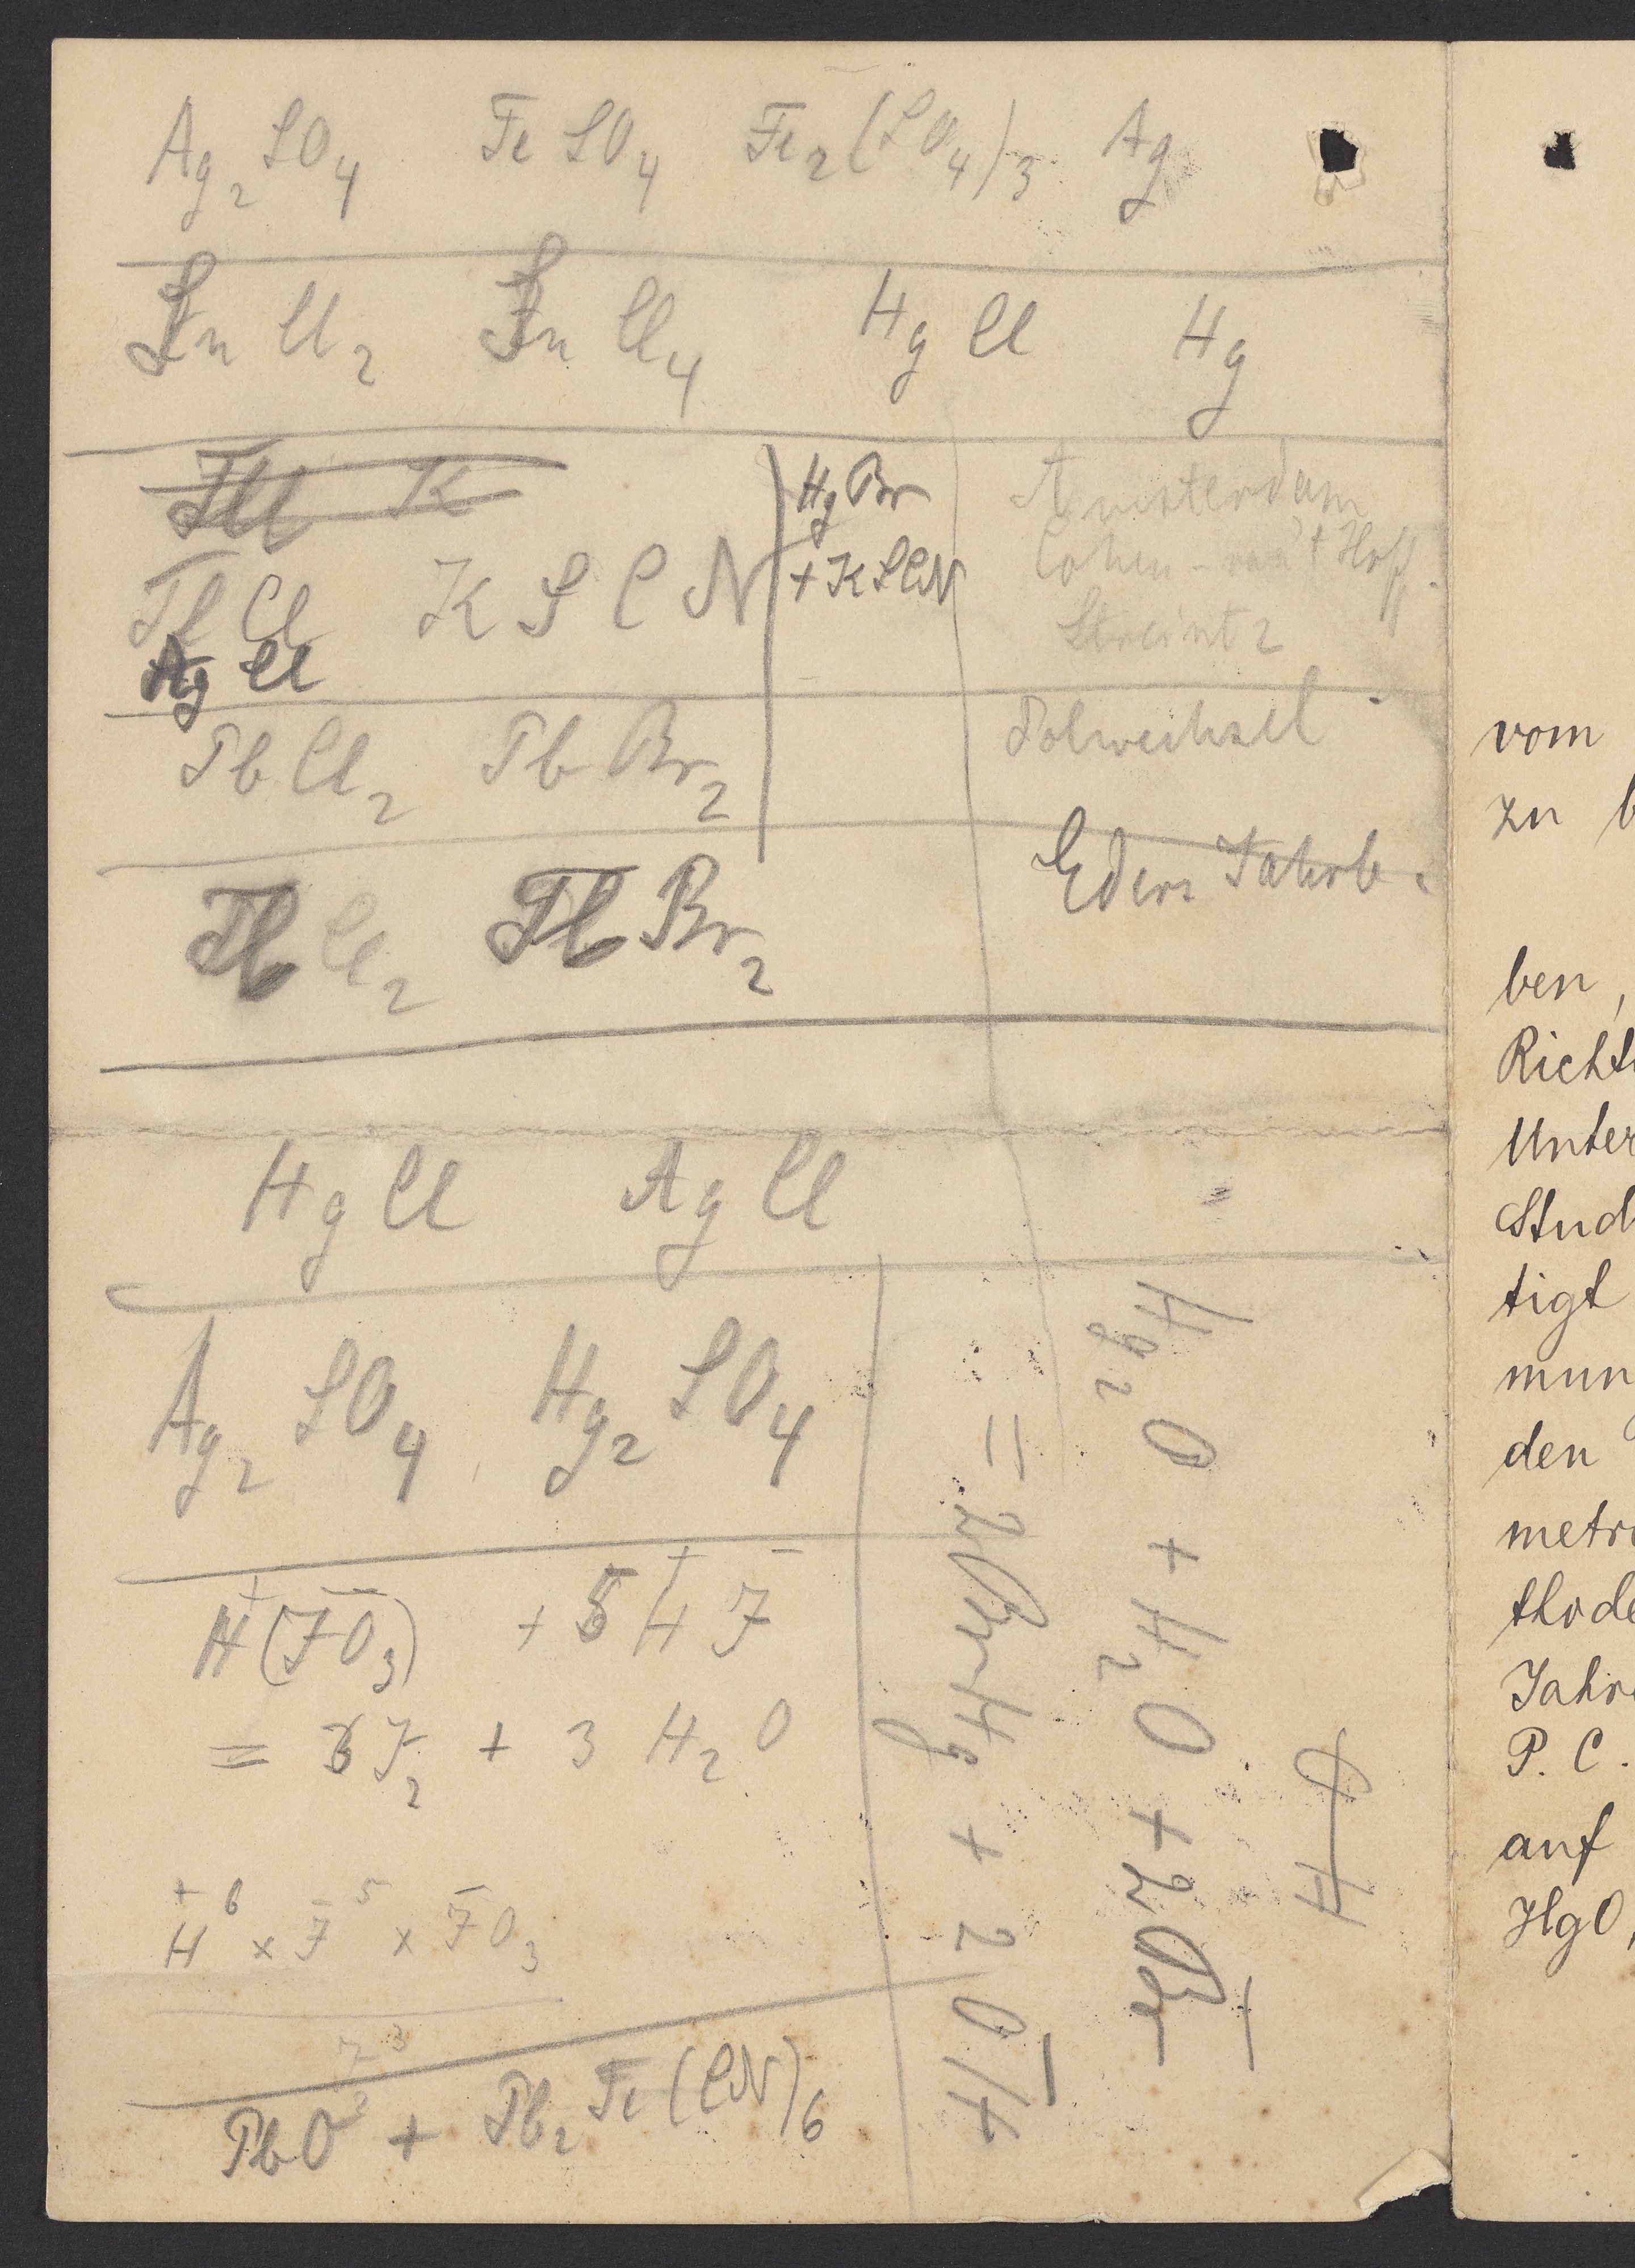 Ag₂SO₄ FeSO₄ Fe₂(SO₄)₃ Ag
SnCl₂ SnCl₄ HgCl Hg
TlCl K
TlCl KSCN
AgCl
HgBr
+KSCN
Amsterdam
Cohen - van't Hoff.
Streintz
PbCl₂ PbBr₂
Polwechsel
TlCl₂ TlBr₂
Eders Jahrb.
HgCl AgCl
Ag₂SO₄ Hg₂SO₄
H⁺(JO₃)⁻ + 5H⁺J⁻
= 3J₂ + 3H₂O
H⁺⁶ × J⁻⁵ × J⁻O₃
J₂³
PbO² + Pb₂Fe(CN)₆
Hg₂O + H₂O + 2Br⁻
= 2BrHg + 2OH⁻
vom
zu b
ben,
Richt
Unter
Stud
tigt
mun
den
metr
thode
Jahr
P. C.
auf
HgO,